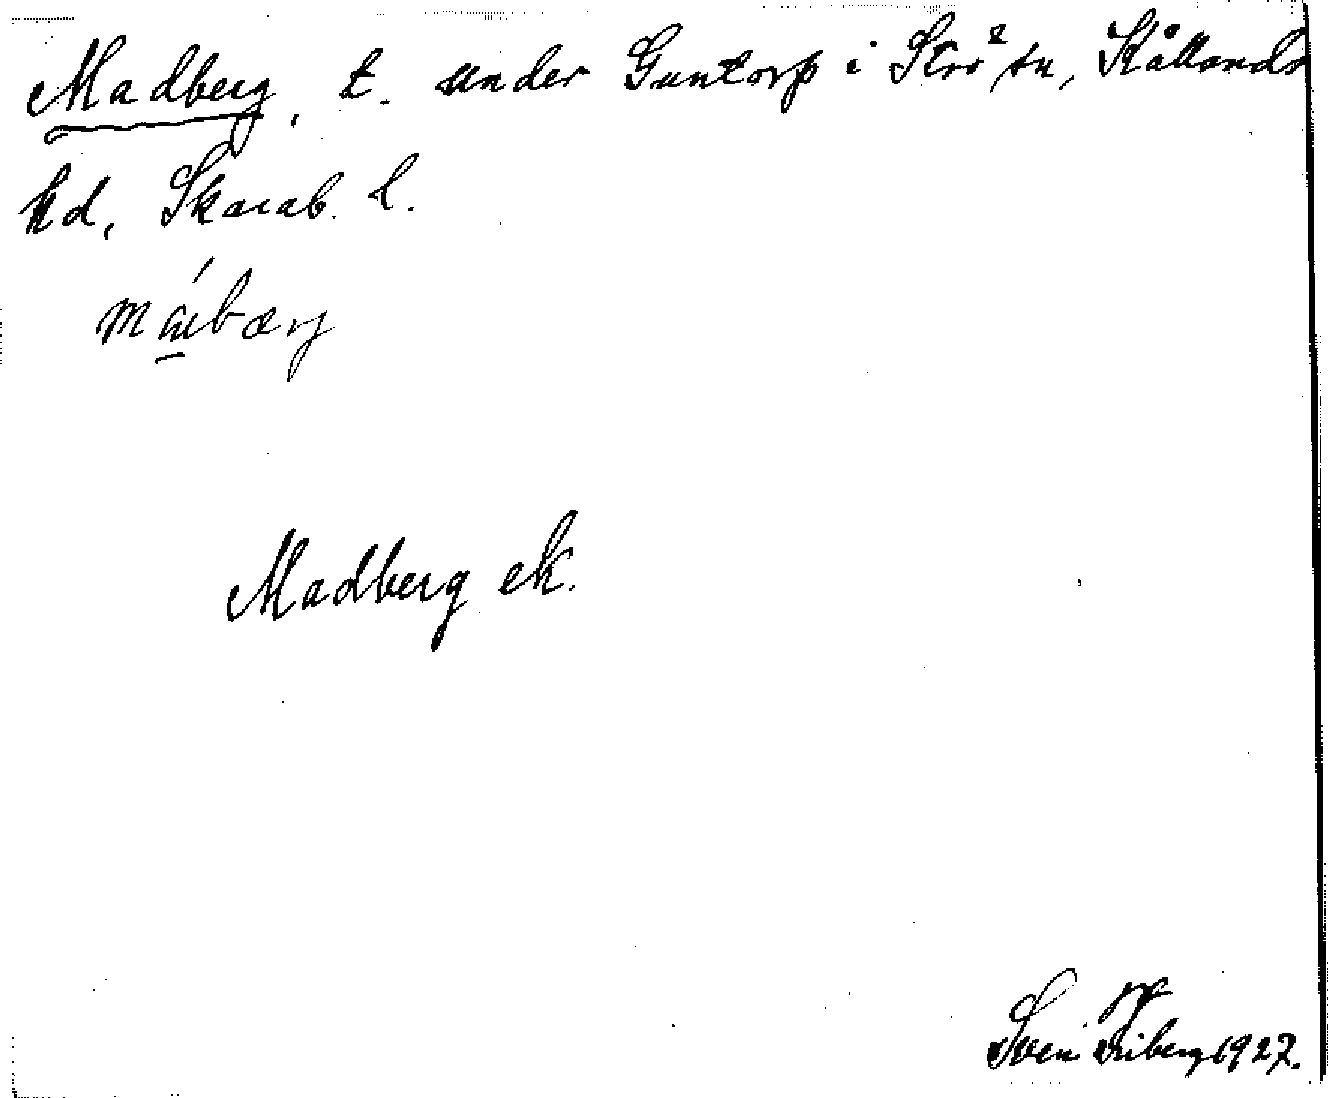 Madberg, t. under Guntorp i Strö sn, Kållands
hd, Skarab. l.
máibærj
Madberg ek.
Sven Friberg 1927.